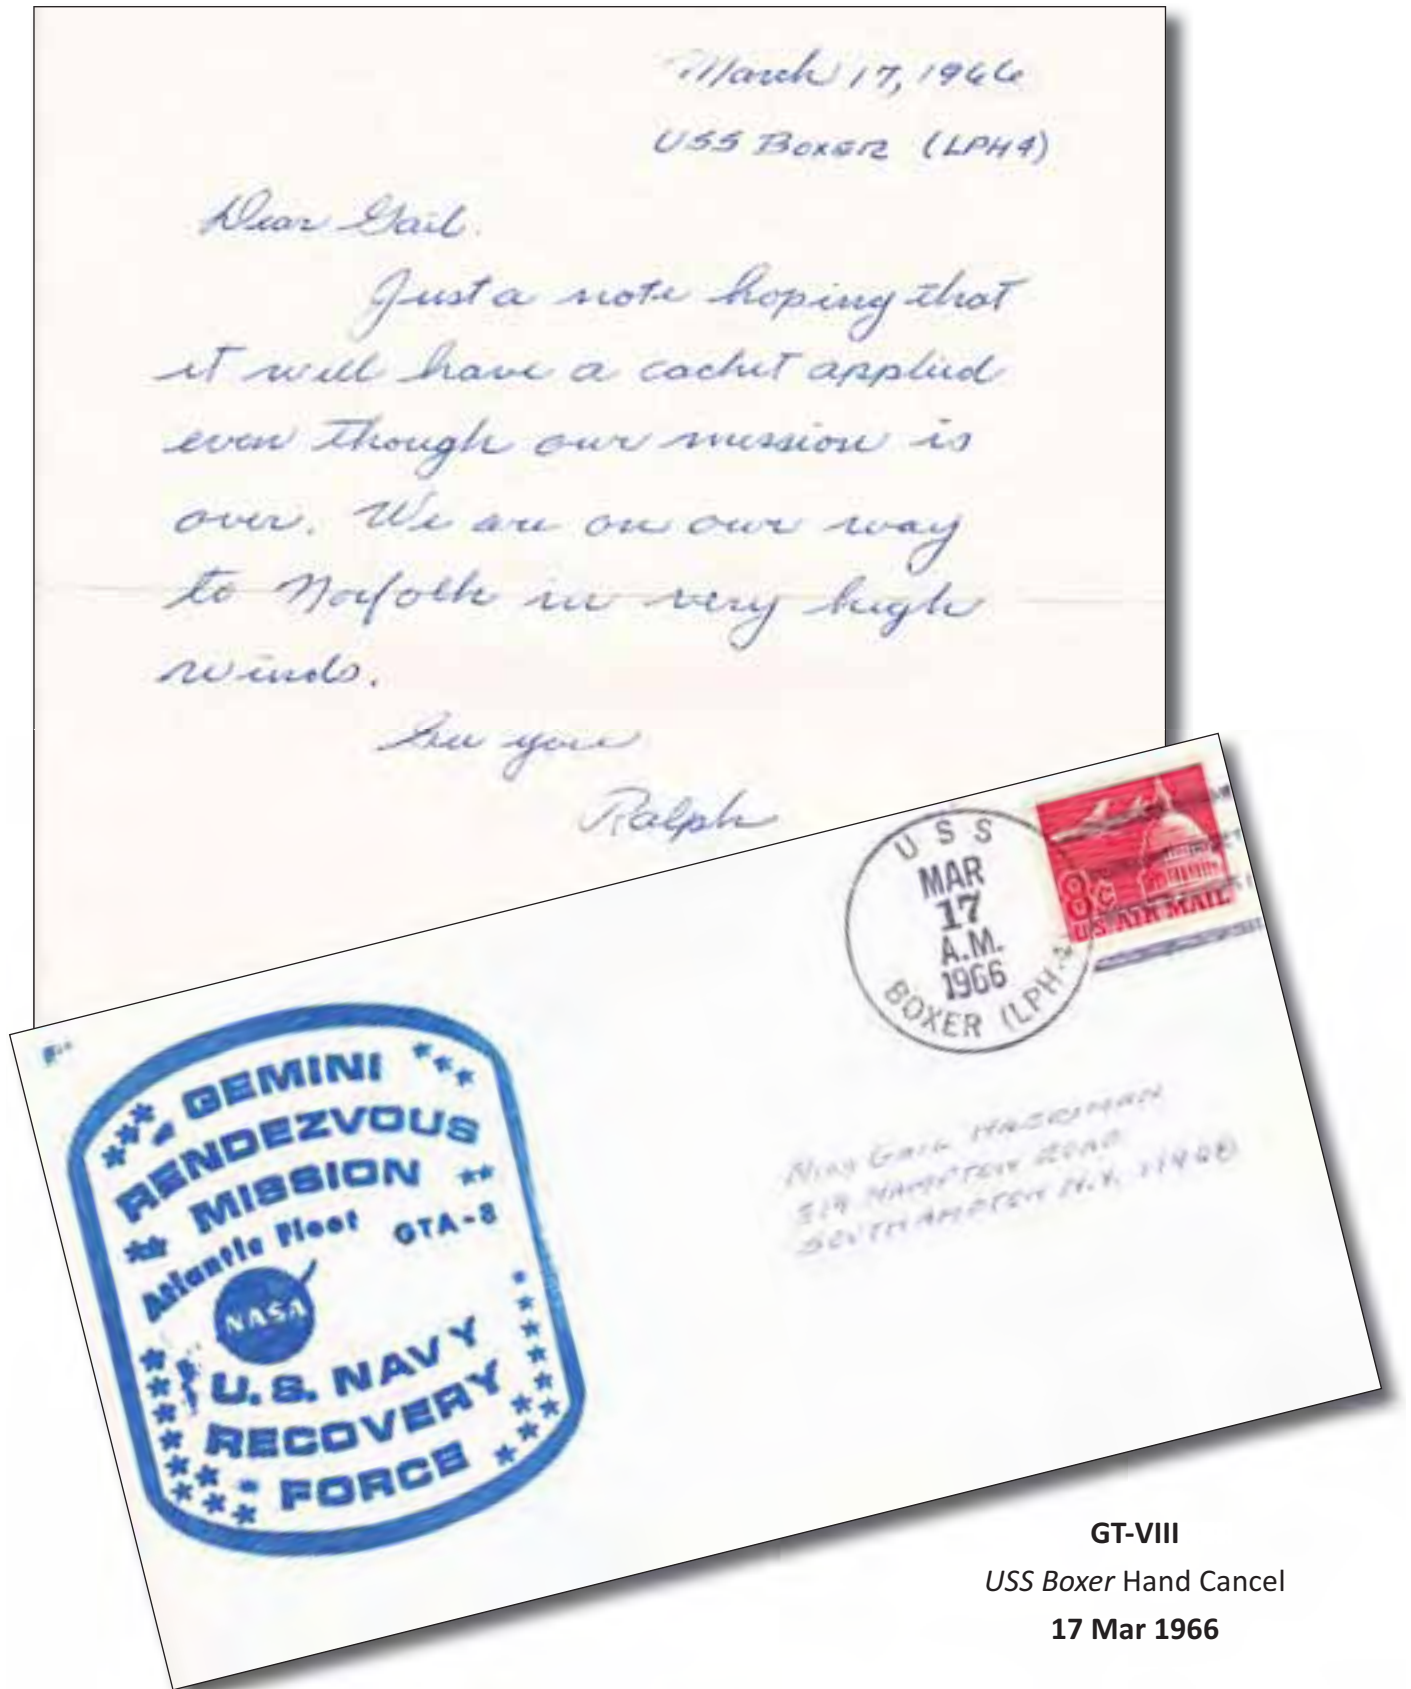 March 17, 1966
USS BOXER (LPH4)
Dear Gail.
Just a note hoping that
it will have a cachet applied
even though our mission is
over. We are on our way
to Norfolk in very high
winds.
See you
Ralph
USS
MAR
17
A.M.
1966
BOXER (LPH-4)
8¢
US AIR MAIL
GEMINI
RENDEZVOUS
MISSION
Atlantic Fleet GTA-8
NASA
U.S. NAVY
RECOVERY
FORCE
Miss GAIL
HAMPTON ROAD
SOUTHAMPTON N.Y.
GT-VIII
USS Boxer Hand Cancel
17 Mar 1966